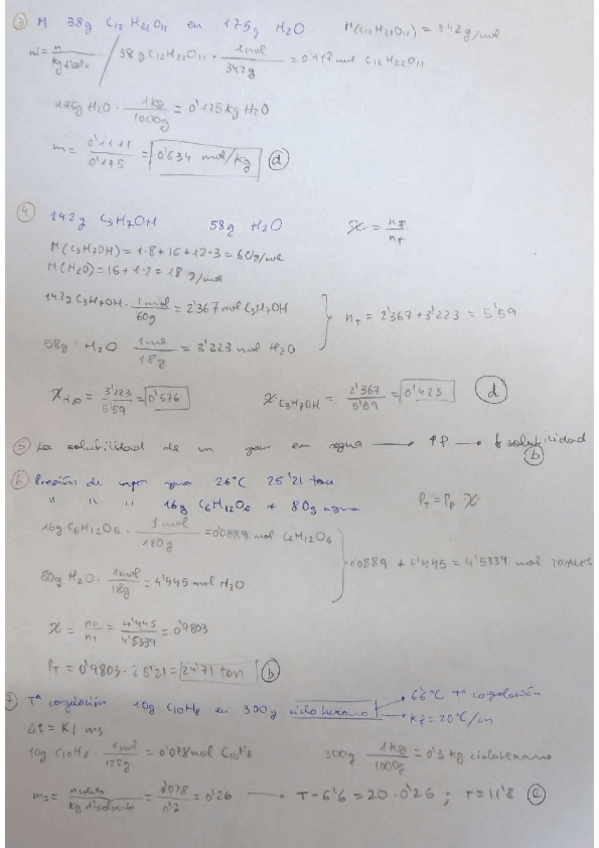 ③ M 38g C12H22O11 en 175g H2O M(C12H22O11) = 342g/mol
m = n / kg disolv / 38g C12H22O11 · 1mol / 342g = 0'111 mol C12H22O11
175g H2O · 1kg / 1000g = 0'175 kg H2O
m = 0'1111 / 0'175 = 0'634 mol/kg ⓓ
④ 142g C3H7OH 58g H2O X = nJ / nT
M(C3H7OH) = 1·8+16+12·3 = 60g/mol
M(H2O) = 16+1·2 = 18 g/mol
142g C3H7OH · 1mol / 60g = 2'367 mol C3H7OH
nT = 2'367 + 3'223 = 5'59
58g H2O 1mol / 18g = 3'223 mol H2O
X H2O = 3'223 / 5'59 = 0'576 X C3H7OH = 2'367 / 5'59 = 0'423 ⓓ
⑤ La solubilidad de un gas en agua → ↑P → ↑ solubilidad ⓑ
⑥ Presión de vapor agua 26°C 25'21 torr
" " " 16g C6H12O6 + 80g agua PT = PP X
16g C6H12O6 · 1mol / 180g = 0'0889 mol C6H12O6
0'0889 + 4'445 = 4'5339 mol TOTALES
80g H2O · 1mol / 18g = 4'445 mol H2O
X = nD / nT = 4'445 / 4'5339 = 0'9803
PT = 0'9803 · 25'21 = 24'71 torr ⓑ
⑦ Tª congelación 10g C10H8 en 300g ciclohexano 6'6°C Tª congelación
Kf = 20°C/m
Δt = Kf ms
10g C10H8 · 1mol / 128g = 0'078 mol C10H8 300g 1kg / 1000g = 0'3 kg ciclohexano
ms = nsoluto / kg disolvente = 0'078 / 0'3 = 0'26 → T-6'6 = 20·0'26 ; T = 11'8 ⓒ